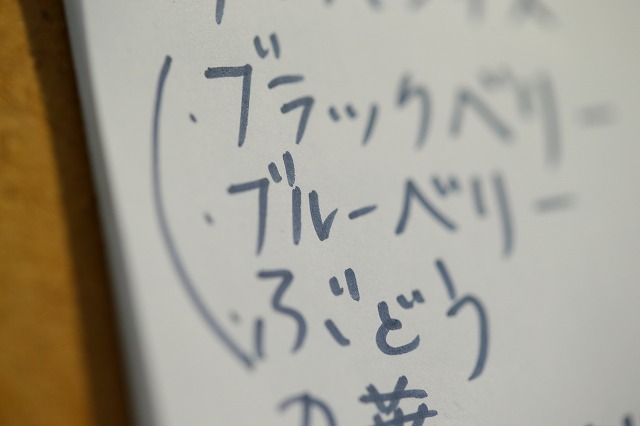 ・ブラックベリー
・ブルーベリー
・ぶどう